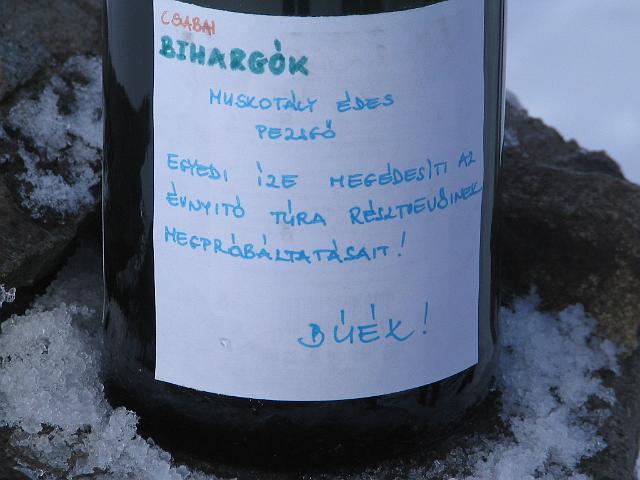 CSABAI
BIHARGÓK
MUSKOTÁLY ÉDES
PEZSGŐ
EGYEDI ÍZE MEGÉDESÍTI AZ
ÉVNYITÓ TÚRA RÉSZTVEVŐINEK
MEGPRÓBÁLTATÁSAIT!
BÚÉK!